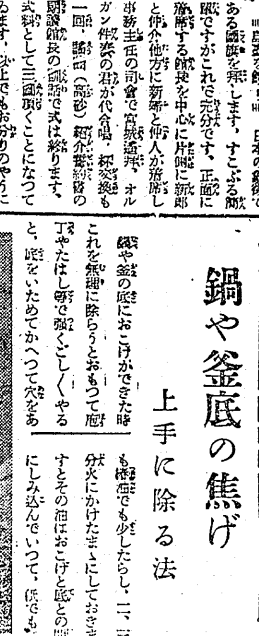 ある國旗を拜します、すこぶる簡
單ですがこれで充分です。正面に
着席する館長を中心に片側に新郎
と仲介他方に新婦と仲人が着席し
事務主任の司會で宮城遙拜、オル
ガン伴奏の君が代合唱、杯交換も
一回、謠曲(高砂)紹介誓約書の
朗讀館長の訓話で式は終ります。
式料として三圓頂くことになつて
ゐます、以上でもお分りのやうに
鍋や釜底の焦げ
上手に除る法
鍋や釜の底におこげができた時
これを無理に除らうとおもつて庖
丁やたはし等で強くごし〱やる
と、底をいためてかへつて穴をあ
も種油でも少したらし、一、
分火にかけたまゝにしておきま
すとその油はおこげと底との間
にしみ込んでいつて、でも